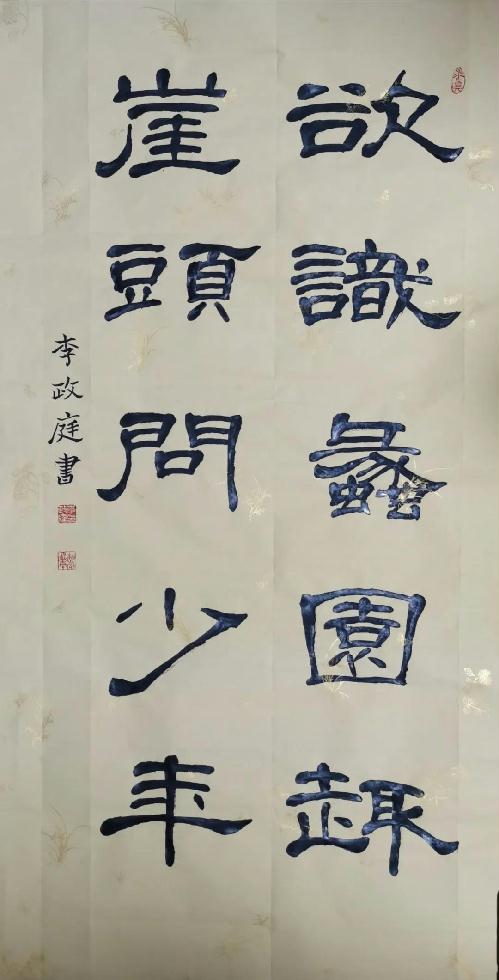 欲識蠡園趣
崖頭問少年
李政庭書